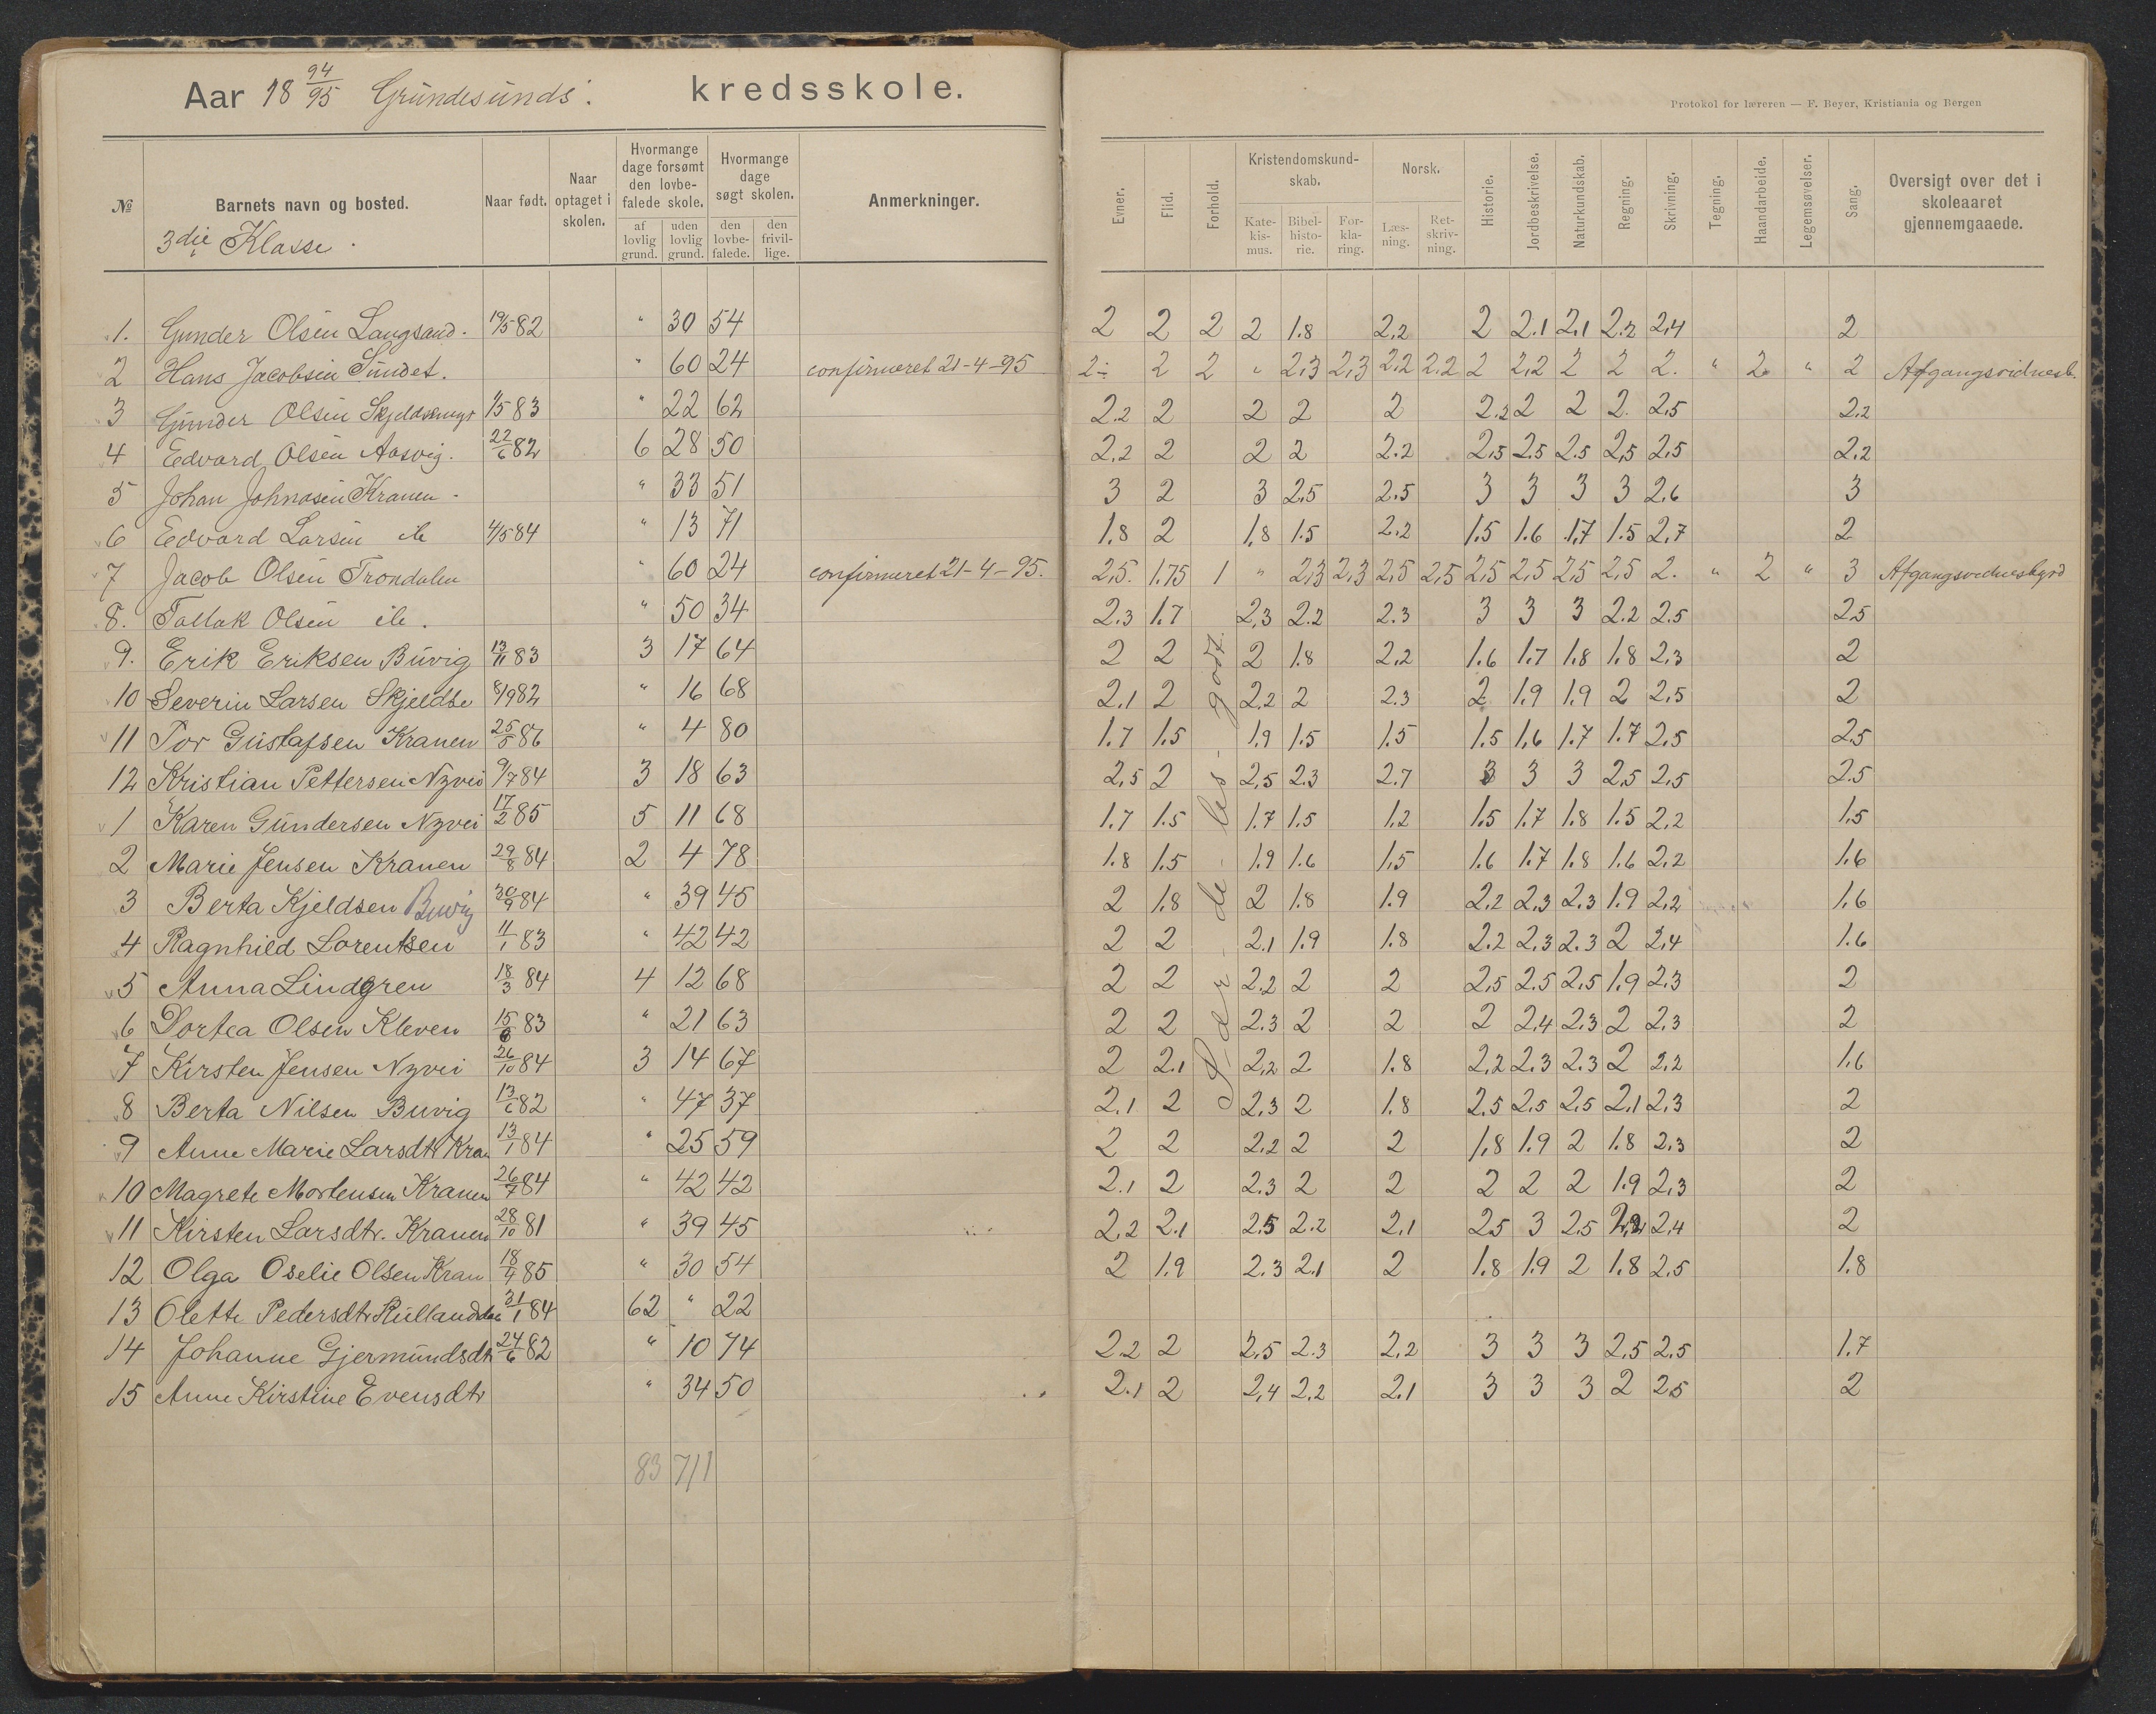 Aar 18 94/95 Grundesunds. kredsskole.
Protokol for læreren — F. Beyer, Kristiania og Bergen
№ | Barnets navn og bosted. | Naar født. | Naar optaget i skolen. | Hvormange dage forsømt den lovbefalede skole. | af lovlig grund. | uden lovlig grund. | Hvormange dage søgt skolen. | den lovbefalede. | den frivillige. | Anmerkninger. | Evner. | Flid. | Forhold. | Kristendomskundskab. | Katekismus. | Bibelhistorie. | Forklaring. | Norsk. | Læsning. | Retskrivning. | Historie. | Jordbeskrivelse. | Naturkundskab. | Regning. | Skrivning. | Tegning. | Haandarbeide. | Legemsøvelser. | Sang. | Oversigt over det i skoleaaret gjennemgaaede.
3die Klasse.
1. Gunder Olsen Langsand. 19/5 82 " 30 54 2 2 2 2 1.8 2,2 2 2.1 2,1 2.2 2,4 2
2 Hans Jacobsen Sundet. " 60 24 confirmeret 21-4-95 2÷ 2 2 " 2,3 2,3 2,2 2.2 2 2,2 2 2 2. " 2 " 2 Afgangsvidnesb.
3 Gunder Olsen Skjeldsmyr 1/5 83 " 22 62 2.2 2 2 2 2 2.2 2 2 2. 2,5 2,2
4 Edvard Olsen Aasvig. 22/6 82 6 28 50 2.2 2 2 2 2.2 2,5 2.5 2.5 2,5 2,5 2,2
5 Johan Johnasen Kranen. " 33 51 3 2 3 2,5 2.5 3 3 3 3 2,6 3
6 Edvard Larsen ib 4/5 84 " 13 71 1.8 2 1,8 1.5 2,2 1.5 1.6 1.7 1.5 2,7 2
7 Jacob Olsen Trondalen " 60 24 confirmeret 21-4-95. 2,5. 1.75 1 " 2,3 2,3 2,5 2,5 2,5 2,5 2,5 2,5 2. " 2 " 3 Afgangsvidnesbyrd
8. Tallak Olsen ib. " 50 34 2.3 1.7 2,3 2.2 2.3 3 3 3 2.2 2.5 2,5
9. Erik Eriksen Buvig 13/11 83 3 17 64 2 2 2 1.8 2,2 1.6 1.7 1.8 1.8 2,3 2
10 Severin Larsen Skjeldse 8/9 82 " 16 68 2.1 2 2,2 2 2.3 2 1.9 1.9 2 2,5 2
11 Tor Gustafsen Kranen 25/5 86 " 4 80 1.7 1.5 1.9 1.5 1.5 1.5 1,6 1.7 1.7 2,5 2,5
12 Kristian Pettersen Nyvei 9/7 84 3 18 63 2,5 2 2,5 2.3 2.7 3 3 3 2,5 2,5 2.5
1 Karen Gundersen Nyvei 17/2 85 5 11 68 1.7 1.5 1.7 1.5 1.2 1.5 1.7 1.8 1.5 2,2 1,5
2 Marie Jensen Kranen 29/8 84 2 4 78 1.8 1.5 1.9 1.6 1,5 1.6 1.7 1.8 1.6 2,2 1.6
3 Berta Kjeldsen Buvig 30/9 84 " 39 45 2 1.8 2 1.8 1.9 2,2 2,3 2.3 1.9 2,2 1,6
4 Ragnhild Lorentsen 11/1 83 " 42 42 2 2 2.1 1.9 1.8 2.2 2,3 2.3 2 2,4 1.6
5 Anna Lindgren 18/3 84 4 12 68 2 2 2.2 2 2 2,5 2.5 2,5 1.9 2,3 2
6 Dortea Olsen Kleven 15/6 83 " 21 63 2 2 2.3 2 2 2 2,4 2.3 2 2,3 2
7 Kirsten Jensen Nyvei 26/10 84 3 14 67 2 2.1 2,2 2 1.8 2,2 2.3 2.3 2 2,2 1,6
8 Berta Nilsen Buvig 13/6 82 " 47 37 2.1 2 2,3 2 1.8 2.5 2,5 2.5 2,1 2,3 2
9 Anne Marie Larsdtr Kran 13/1 84 " 25 59 2 2 2,2 2 2 1,8 1.9 2 1.8 2,3 2
10 Magrete Mortensen Kranen 26/7 84 " 42 42 2.1 2 2.3 2 2 2 2 2 1.9 2,3 2
11 Kirsten Larsdtr. Kranen 28/10 81 " 39 45 2,2 2.1 2,5 2.2 2,1 2,5 3 2,5 2,2 2,4 2
12 Olga Oselie Olsen Kran 18/4 85 " 30 54 2 1.9 2.3 2.1 2 1.8 1.9 2 1.8 2,5 1.8
13 Olette Pedersdtr Rullanddal 31/1 84 62 " 22
14 Johanne Gjermundsdtr 24/6 82 " 10 74 2.2 2 2,5 2.3 2,2 3 3 3 2,5 2,5 1.7
15 Anne Kirstine Evensdtr " 34 50 2.1 2 2,4 2.2 2,1 3 3 3 2 2,5 2
83 711
Sær-de-les-godt.